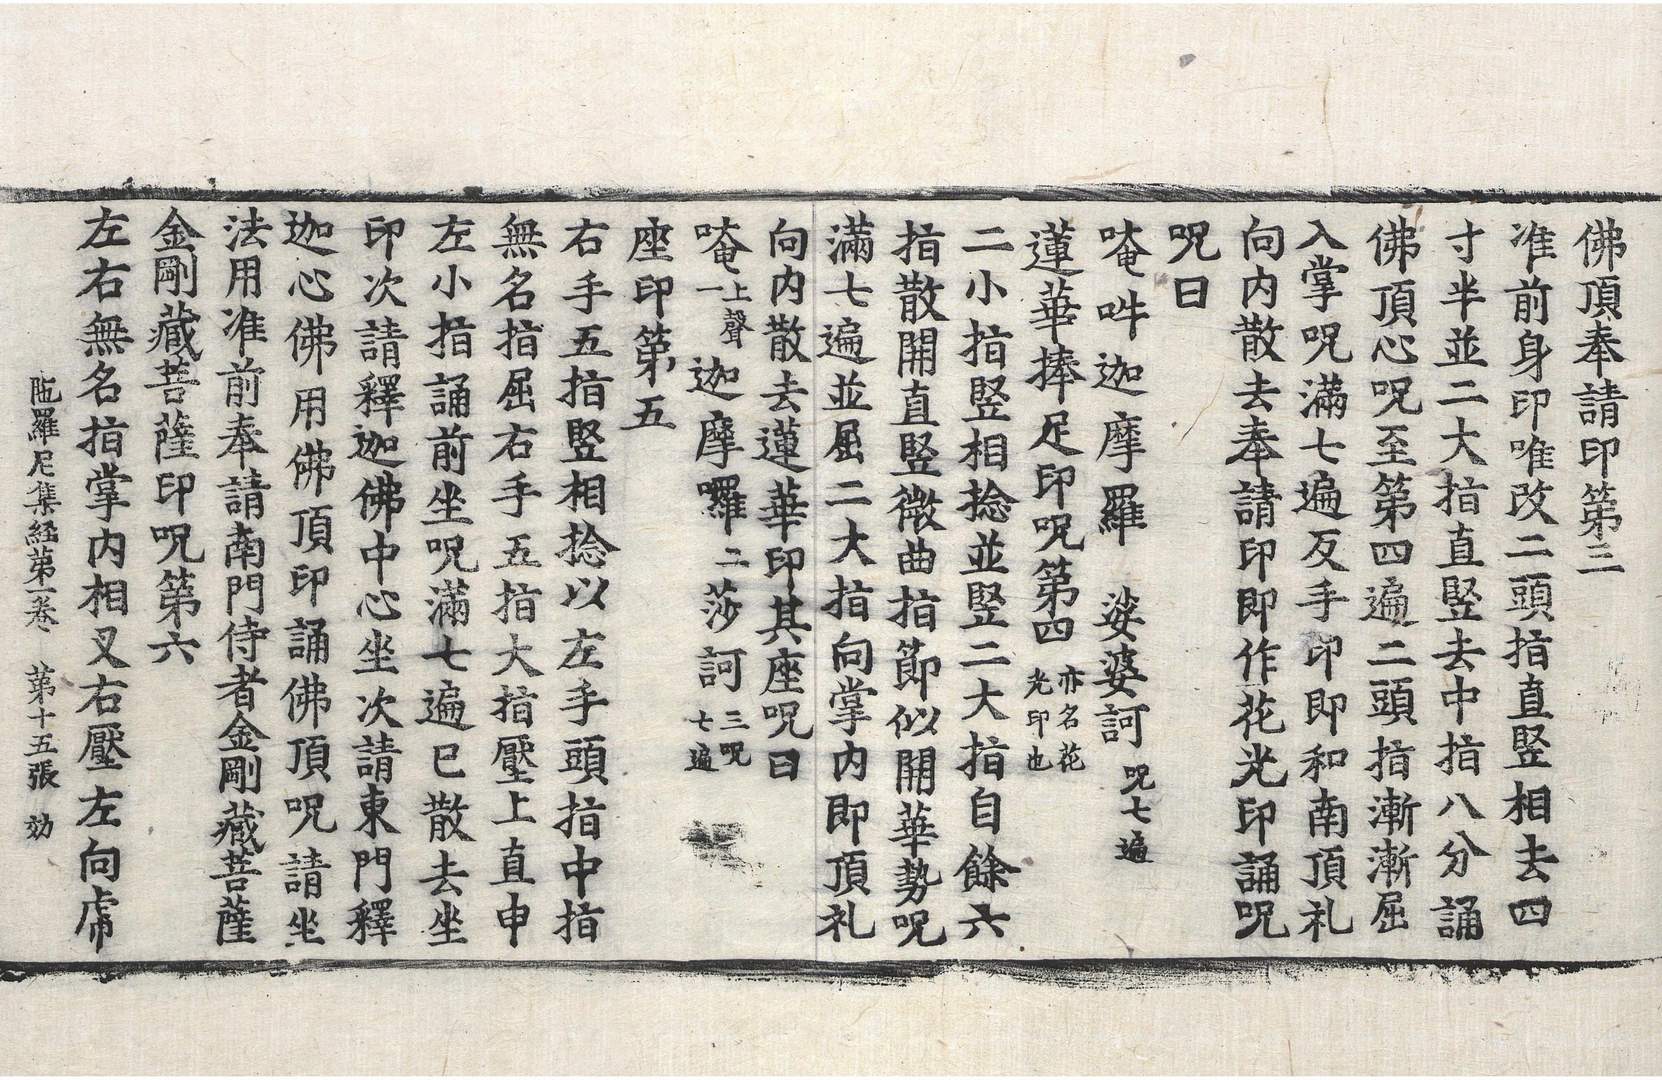 佛頂奉請印第三
准前身印唯改二頭指直竪相去四
寸半並二大指直竪去中指八分誦
佛頂心呪至第四遍二頭指漸漸屈
入掌呪滿七遍反手印即和南頂礼
向内散去奉請印即作花光印誦呪
呪曰
唵吽迦摩羅 娑婆訶呪七遍
蓮華捧足印呪第四亦名花光印也
二小指竪相捻並竪二大指自餘六
指散開直竪微曲指節似開華勢呪
滿七遍並屈二大指向掌内即頂礼
向内散去蓮華印其座呪曰
唵上聲一迦摩囉二莎訶三呪七遍
座印第五
右手五指竪相捻以左手頭指中指
無名指屈右手五指大指壓上直申
左小指誦前坐呪滿七遍已散去坐
印次請釋迦佛中心坐次請東門釋
迦心佛用佛頂印誦佛頂呪請坐
法用准前奉請南門侍者金剛藏菩薩
金剛藏菩薩印呪第六
左右無名指掌内相叉右壓左向虎
陁羅尼集経第一卷 第十五張 効